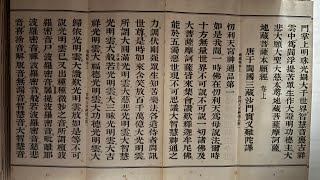 門掌上明珠光攝大千世界智慧音裏吉祥
雲中為閻浮提苦眾生作大證明功德主大
悲大願大聖大慈本尊地藏菩薩摩訶薩
地藏菩薩本願經 卷上
唐于闐國三藏沙門實叉難陀譯
忉利天宮神通品第一
如是我聞一時佛在忉利天為母說法爾時
十方無量世界不可說不可說一切諸佛及
大菩薩摩訶薩皆來集會讚歎釋迦牟尼佛
能於五濁惡世現不可思議大智慧神通之
力調伏剛強眾生知苦樂法各遣侍者問訊
世尊是時如來含笑放百千萬億大光明雲
所謂大圓滿光明雲大慈悲光明雲大智慧
光明雲大般若光明雲大三昧光明雲大吉
祥光明雲大福德光明雲大功德光明雲大
歸依光明雲大讚歎光明雲放如是等不可
說光明雲已又出種種微妙之音所謂檀波
羅蜜音尸波羅蜜音羼提波羅蜜音毗離耶
波羅蜜音禪波羅蜜音般若波羅蜜音慈悲
音喜捨音解脫音無漏音智慧音大智慧音